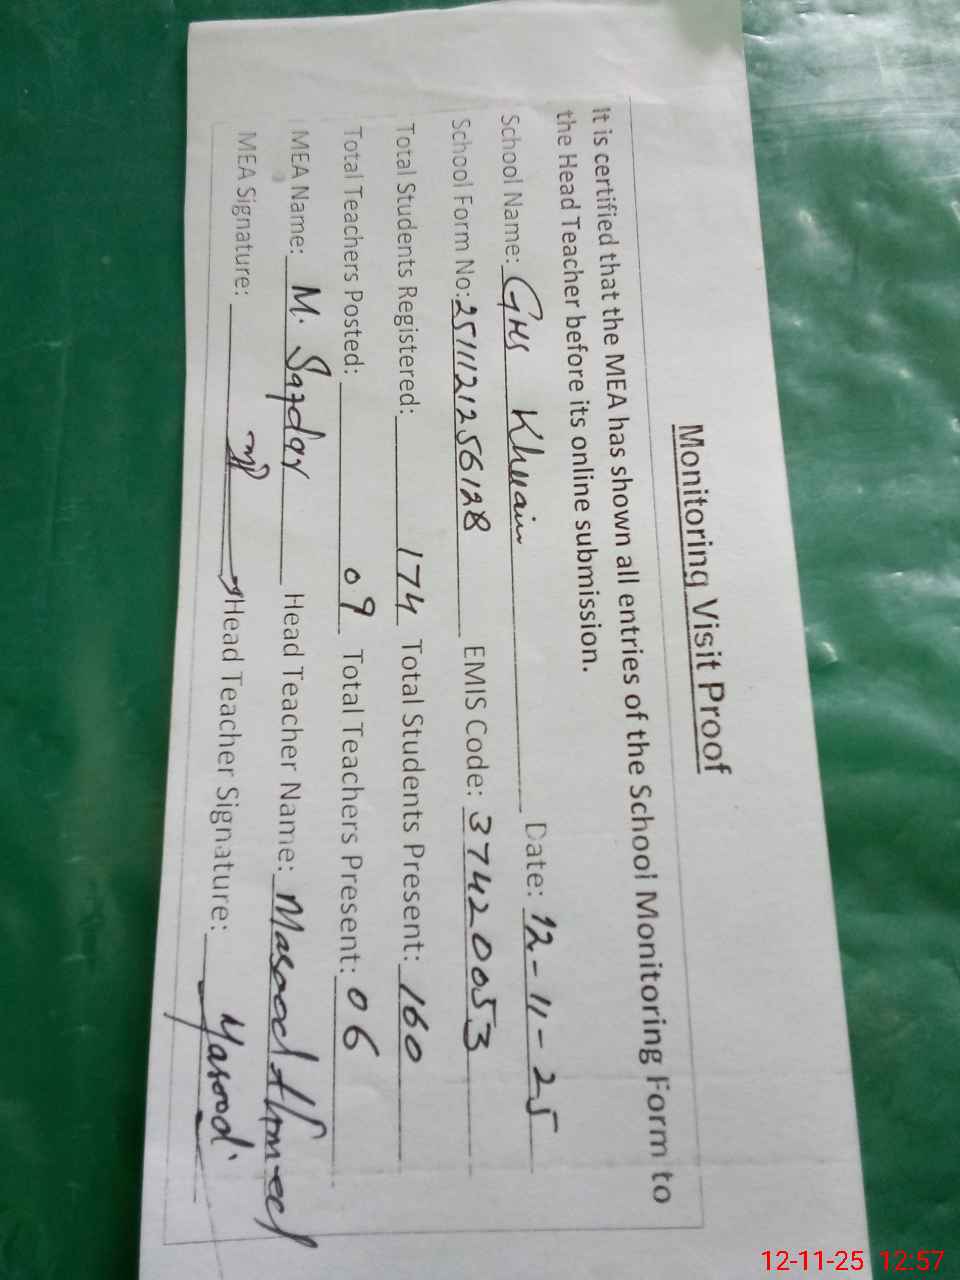 Monitoring Visit Proof
It is certified that the MEA has shown all entries of the School Monitoring Form to
the Head Teacher before its online submission.
School Name: GHS Khuain Date: 12-11-25
School Form No: 2511121256128 EMIS Code: 37420053
Total Students Registered: 174 Total Students Present: 160
Total Teachers Posted: 09 Total Teachers Present: 06
MEA Name: M. Safdar Head Teacher Name: Masood Ahmed
MEA Signature: Head Teacher Signature: Masood
12-11-25 12:57